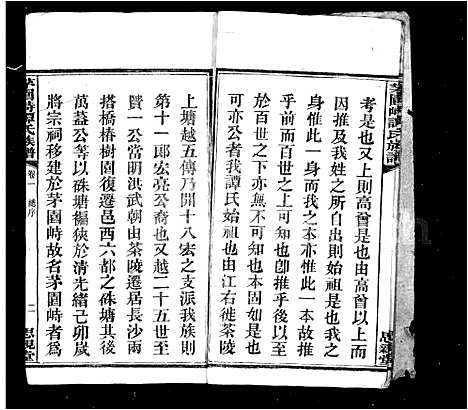 茅園峙譚氏族譜
考是也又上則高曾是也由高曾以上而
因推及我姓之所自出則始祖是也一本
身惟此一身而我之本則不惟此一本故推
乎前而百世之上可知也卽推乎後以至
於百世之下亦無不可知也本固如是夫
可亦公者我譚氏始祖也由江右徙茶陵
思親堂
上塘越五傳乃開十八宏之支派我族則
第十一郎宏亮公裔也又越二十五世至
贊一公當明洪武朝由茶陵遷居長沙兩
搭橋椿樹園復遷邑西六都之硃塘其後
萬益公等以硃塘褊狹於清光緒己卯歲
將宗祠移建於茅園峙故名茅園峙者爲
茅園峙譚氏族譜
卷一
總序
二
思親堂